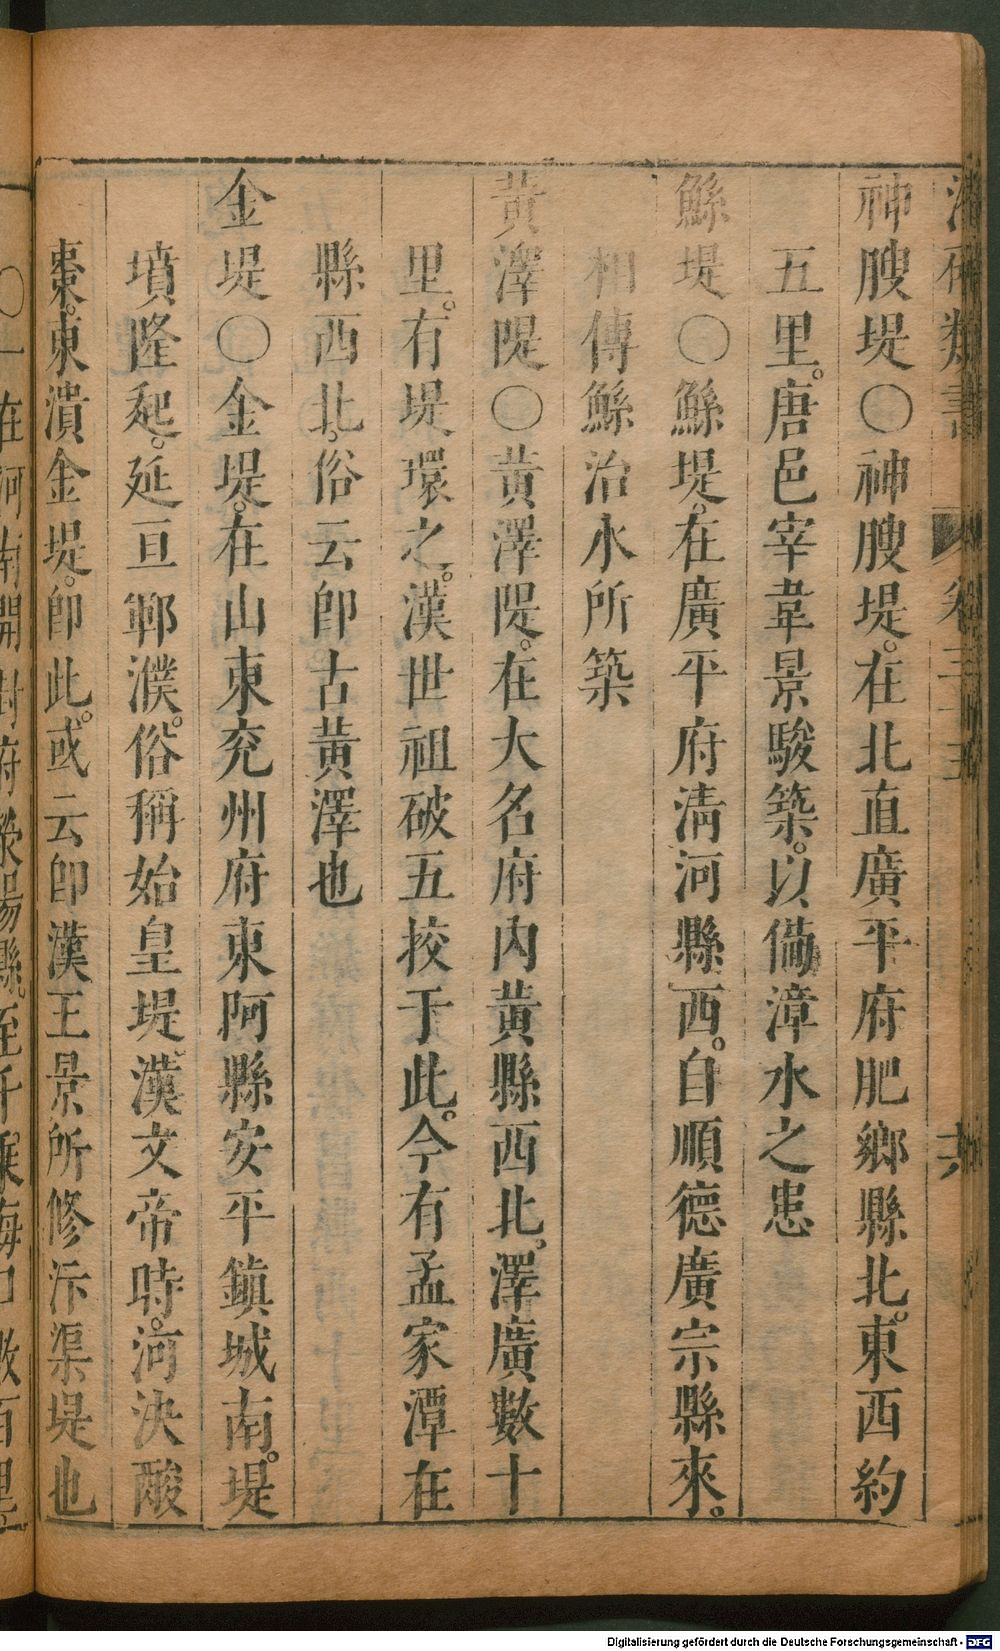 神膄堤〇神膄堤。在北直廣平府肥鄉縣北。東西約
五里。唐邑宰韋景駿築。以備漳水之患
鯀堤〇鯀堤。在廣平府淸河縣西。自順德廣宗縣來。
相傳鯀治水所築
黃澤隄〇黃澤隄。在大名府內黃縣西北。澤廣數十
里。有堤環之。漢世祖破五挍于此。今有孟家潭在
縣西北。俗云卽古黃澤也
金堤〇金堤。在山東兖州府東阿縣安平鎭城南。堤
墳隆起。延亘鄆濮。俗稱始皇堤。漢文帝時。河決酸
棗。東潰金堤。卽此。或云卽漢王景所修汴渠堤也
〇一在河南開封府滎陽縣。至千乘海口數百里
類書 卷三十五
Digitalisierung gefördert durch die Deutsche Forschungsgemeinschaft - DFG